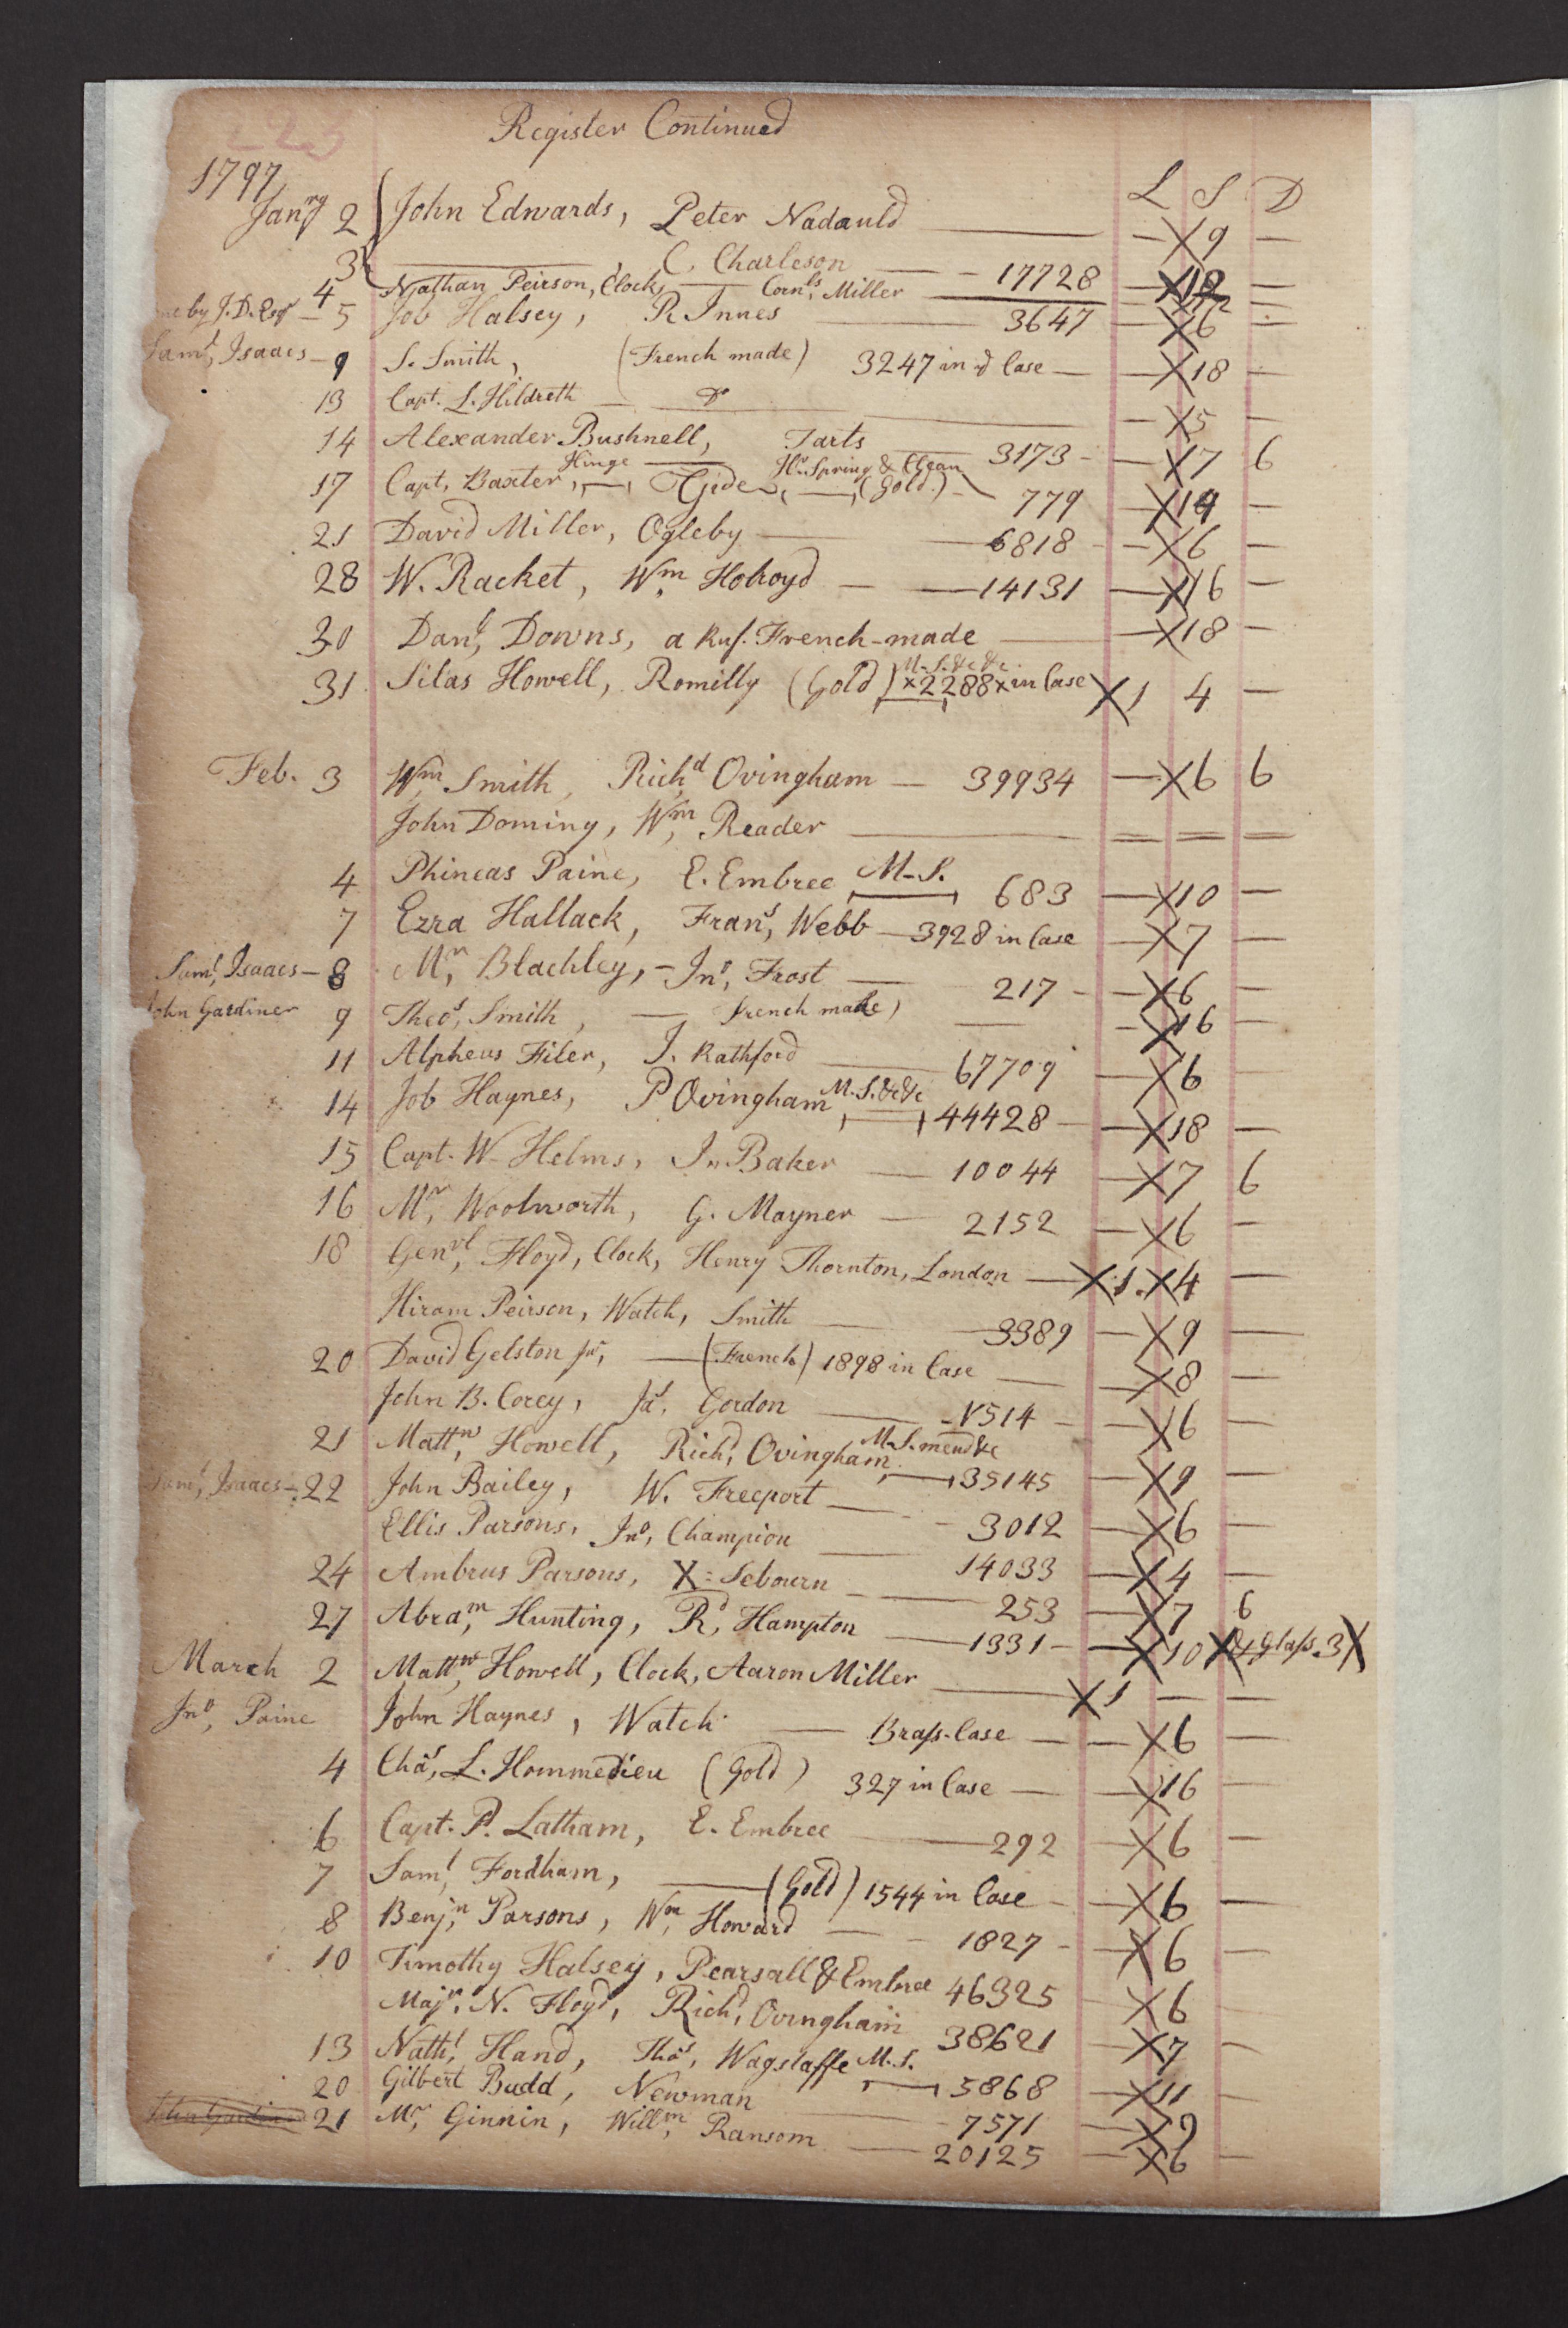 Register Continued
1797 L S D
Janry 2 John Edwards, Peter Nadauld — — X 9 —
3 ———, C. Charleson — 17728 — X 12 —
4 Nathan Peirson, Clock, — Cornls, Miller
me by J. D. Esqr — 5 Job Halsey, R Innes — 3647 — X 6 —
Saml, Isaacs — 9 S. Smith, (French made) 3247 in Case — — X 18 —
13 Capt. L. Hildreth — Do — — X 5 —
14 Alexander Bushnell, Tarts — 3173 — — X 7 6
Hinge — Hr. Spring & Clean
17 Capt. Baxter, — Gide —, (Gold.) — 779 — X 14 —
21 David Miller, Ogleby — 6818 — X 6 —
28 W. Racket, Wm, Holroyd — 14131 — X 16 —
30 Danl, Downs, a Rus. French-made — — X 18 —
M. S. &c &c.
31 Silas Howell, Romilly (Gold) x 2288 x in Case X 1 4 —
Feb. 3 Wm, Smith, Richd Ovingham — 39934 — X 6 6
John Doming, Wm, Reader — = = =
4 Phineas Paine, E. Embree M-S. 683 — X 10 —
7 Ezra Hallack, Frans, Webb — 3928 in Case — X 7 —
Saml, Isaacs — 8 Mr, Blachley, — Jno, Frost — 217 — — X 6 —
John Gardiner 9 Theos, Smith, — French made) — — X 16 —
11 Alpheus Filer, J. Rathford — 67709 — X 6 —
14 Job Haynes, P Ovingham M. S. &c &c 44428 — — X 18 —
15 Capt. W. Helms, Jn. Baker — 10044 — X 7 6
16 Mr, Woolworth, G. Mayner — 2152 — X 6 —
18 Genrl, Floyd, Clock, Henry Thornton, London — X 1. X 4 —
Hiram Peirson, Watch, Smith — 3389 — X 9 —
20 David Gelston Jur, — (French) 1898 in Case — — X 8 —
John B. Corey, Jas. Gordon — 1514 — — X 6 —
21 Mattw, Howell, Richd, Ovingham M. S. mend &c 35145 — X 9 —
Saml, Isaacs — 22 John Bailey, W. Freeport — 3012 — X 6 —
Ellis Parsons, Jno, Champion — 14033 — X 4 —
24 Ambrus Parsons, X = Sebourn — 253 — X 7 6
27 Abram, Hunting, Rd, Hampton — 1331 — — X 10 X & Glass. 3 X
March 2 Mattw, Howell, Clock, Aaron Miller — X 1 — —
Jno, Paine John Haynes, Watch — Brass-Case — — X 6 —
4 Chas, L. Hommedieu (Gold) 327 in Case — — X 16 —
6 Capt. P. Latham, E. Embree — 292 — X 6 —
7 Saml, Fordham, — (Gold) 1544 in Case — — X 6 —
8 Benjn, Parsons, Wm, Howard — 1827 — — X 6 —
10 Timothy Halsey, Pearsall & Embree 46325 — X 6 —
Majr, N. Floyd, Richd, Ovingham 38621 — X 7 —
13 Nathl, Hand, Thos, Wagstaffe M. S. 5868 — X 11 —
20 Gilbert Budd, Newman — 7571 — X 9 —
John Gardiner 21 Mr, Ginnin, Willm, Ransom — 20125 — X 6 —